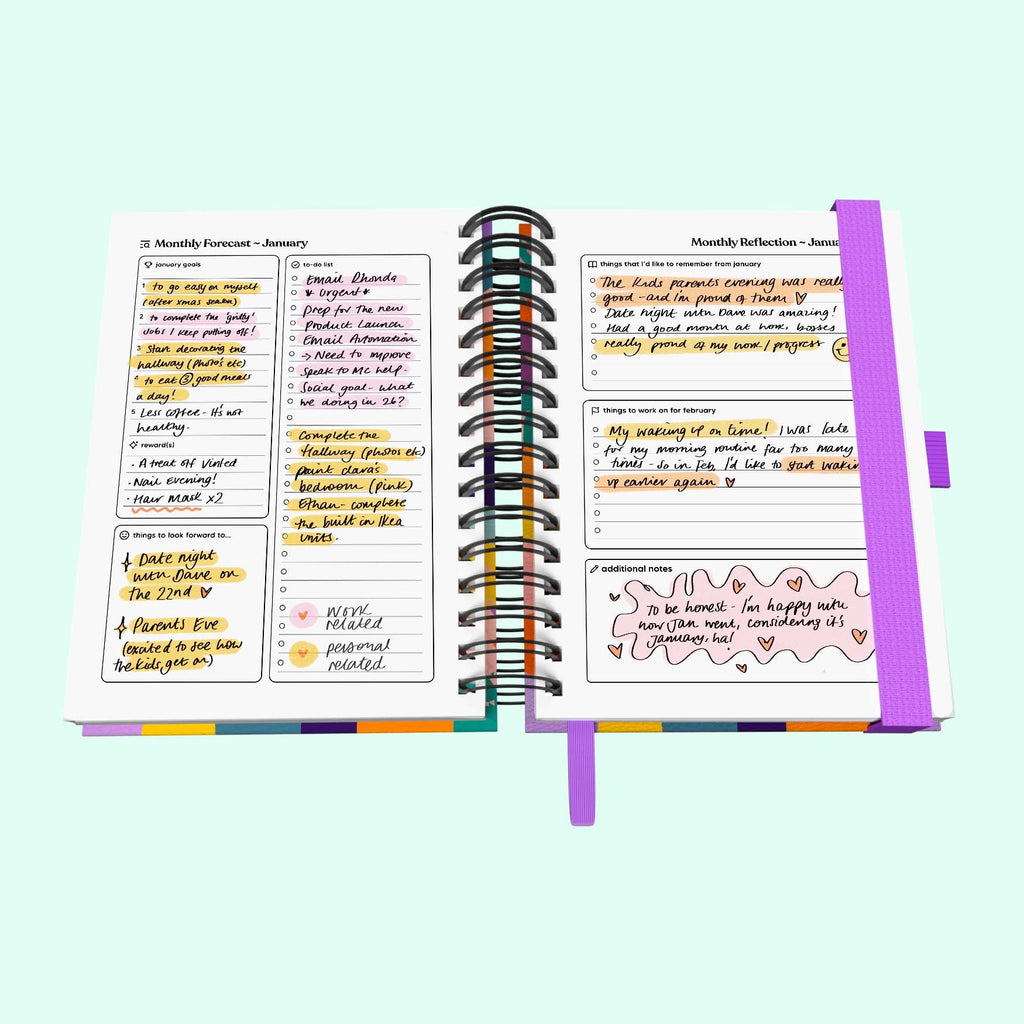 Monthly Forecast ~ January
january goals
1 to go easy on myself
(after xmas season)
2 to complete the 'gritty'
jobs I keep putting off!
3 Start decorating the
hallway (photos etc)
4 to eat 3 good meals
a day!
5 Less coffee - It's not
healthy.
reward(s)
• A treat off Vinted
• Nail Evening!
• Hair Mask x2
things to look forward to...
Date night
with Dave on
the 22nd
Parents Eve
(excited to see how
the kids get on)
to-do list
Email Rhonda
* Urgent *
Prep for the new
Product Launch
Email Automation
→ Need to improve
speak to Mc help.
Social goal - what
we doing in 26?
Complete the
Hallway (photos etc)
paint clara's
bedroom (pink)
Ethan - complete
the built in Ikea
units.
work
related
personal
related
Monthly Reflection ~ Janua
things that I'd like to remember from january
The kids parents evening was reall
good - and I'm proud of them
Date night with Dave was amazing!
Had a good month at work, bosses
really proud of my work / progress
things to work on for february
My waking up on time! I was late
for my morning routine far too many
times - so in Feb, I'd like to start wakin
up earlier again
additional notes
To be honest - I'm happy with
how Jan went, considering it's
January, ha!